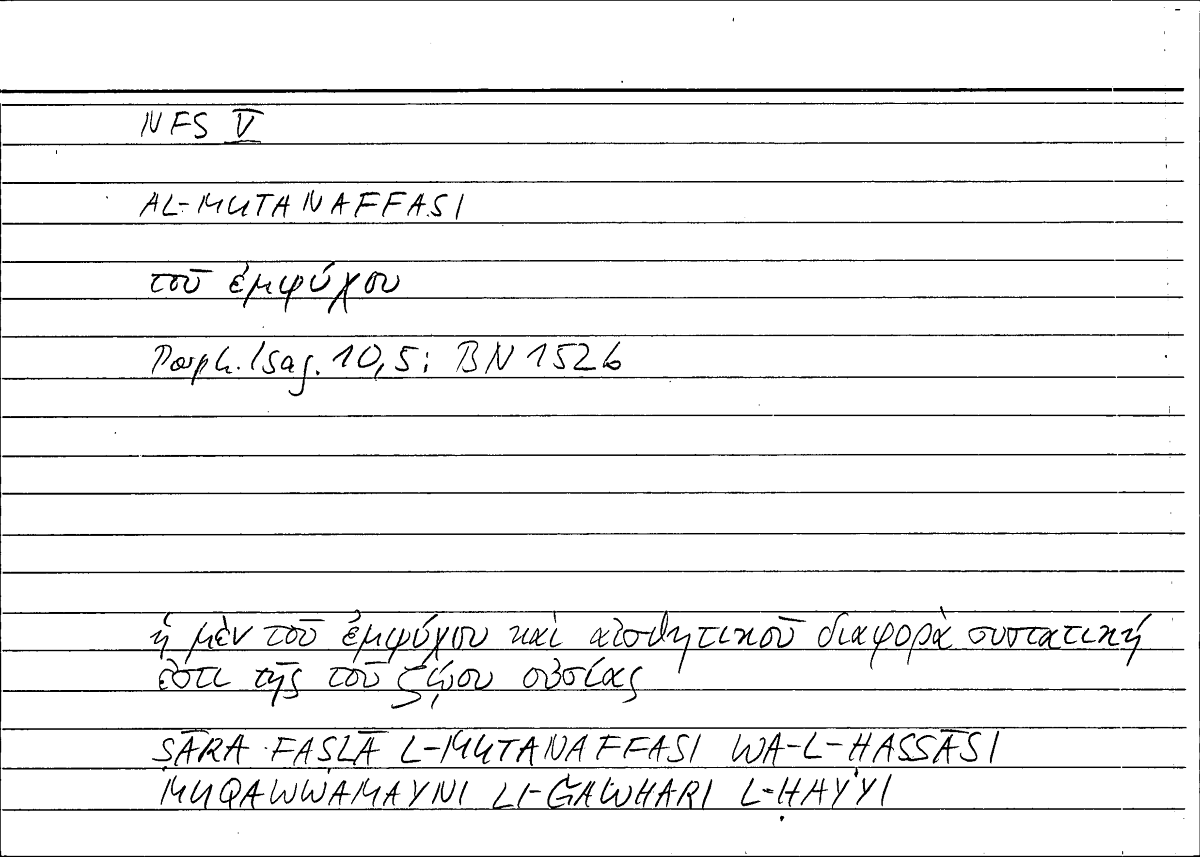 NFS V
AL-MUTANAFFASI
τοῦ ἐμψύχου
Porph. Isag. 10,5; BN 152b
ἡ μὲν τοῦ ἐμψύχου καὶ αἰσθητικοῦ διαφορὰ συστατική
ἐστι τῆς τοῦ ζῴου οὐσίας
ṢĀRA FAṢLĀ L-MUTANAFFASI WA-L-ḤASSĀSI
MUQAWWAMAYNI LI-ǦAWHARI L-ḤAYYI